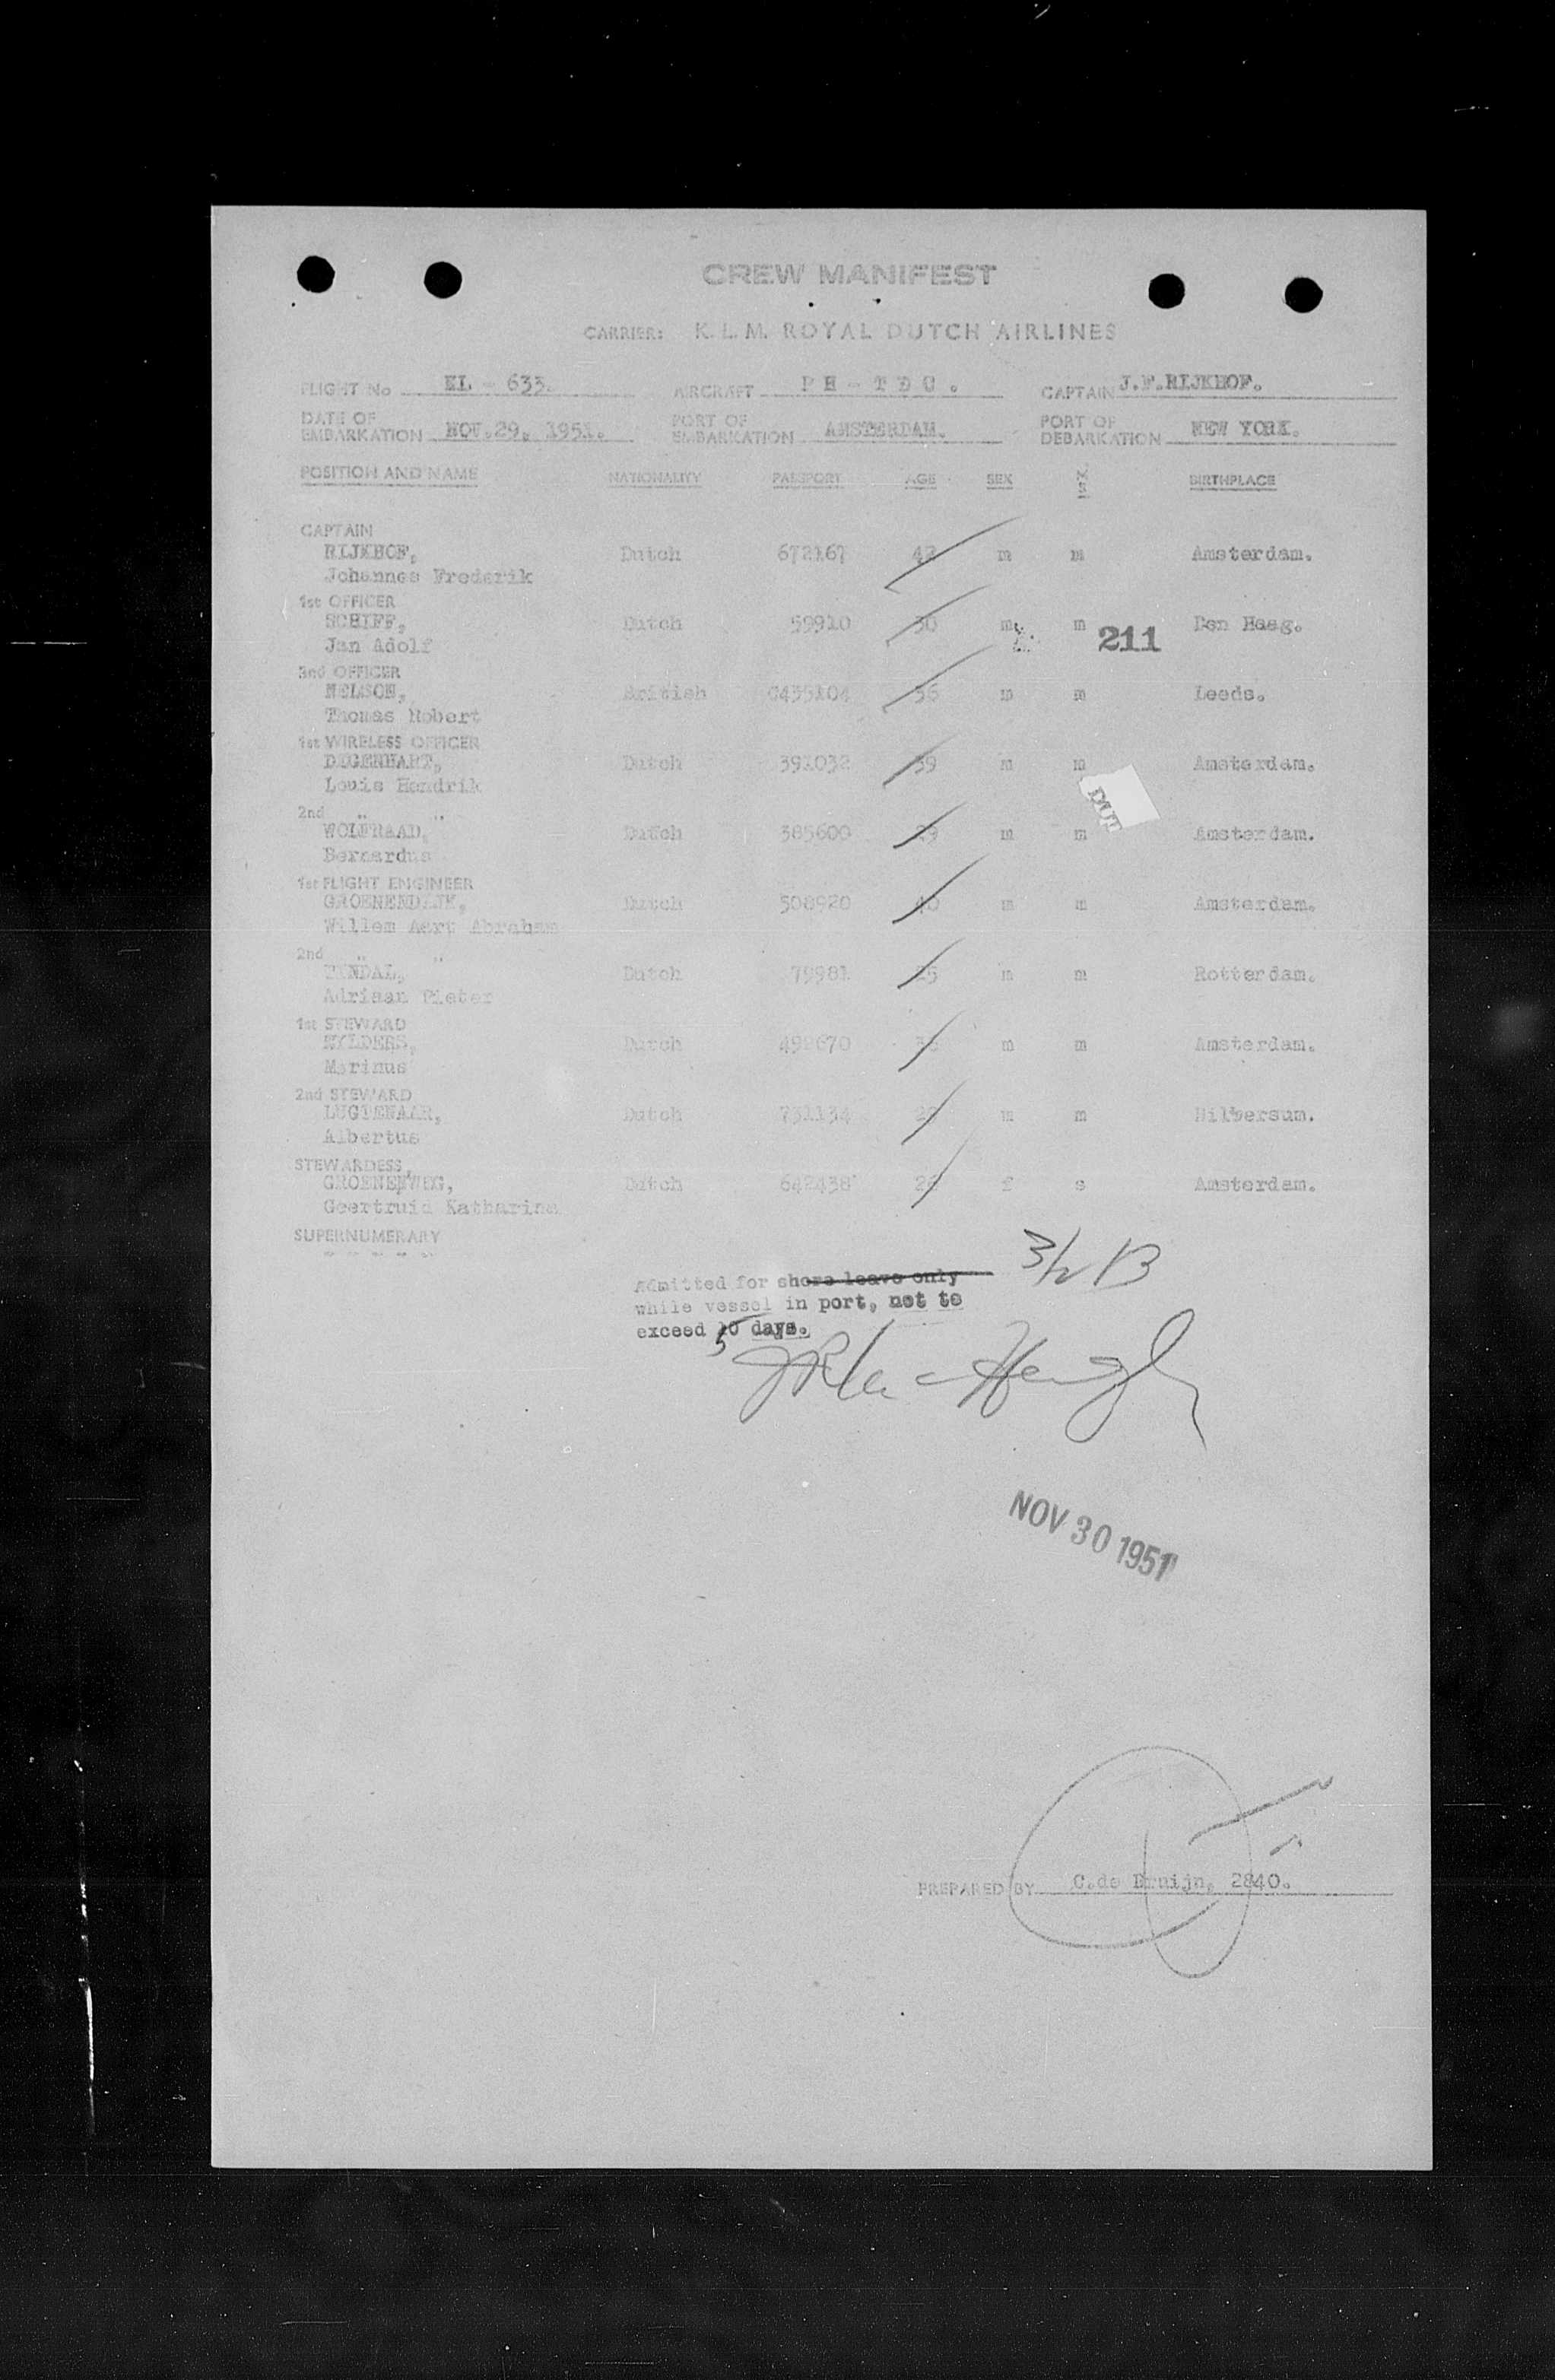 CREW MANIFEST
CARRIER: K.L.M. ROYAL DUTCH AIRLINES
FLIGHT No KL - 633. AIRCRAFT PH - T D U . CAPTAIN J.F.RIJKHOF.
DATE OF EMBARKATION NOV.29, 1951. PORT OF EMBARKATION AMSTERDAM. PORT OF DEBARKATION NEW YORK.
POSITION AND NAME NATIONALITY PASSPORT AGE SEX BIRTHPLACE
CAPTAIN
RIJKHOF, Dutch 672167 42 m m Amsterdam.
Johannes Frederik
1st OFFICER
SCHIFF, Dutch 59910 30 m m Den Haag.
Jan Adolf
211
3nd OFFICER
NELSON, British C435104 36 m m Leeds.
Thomas Robert
1st WIRELESS OFFICER
DEGENHART, Dutch 391032 39 m m Amsterdam.
Louis Hendrik
2nd " "
WOLFRAAD, Dutch 385600 29 m m Amsterdam.
Bernardus
1st FLIGHT ENGINEER
GROENENDIJK, Dutch 508920 40 m m Amsterdam.
Willem Aart Abraham
2nd " "
Dutch 79981 25 m m Rotterdam.
Adriaan Pieter
1st STEWARD
Dutch 492670 m m Amsterdam.
Marinus
2nd STEWARD
LUGTENAAR, Dutch 731134 m m Hilversum.
Albertus
STEWARDESS,
GROENEWEG, Dutch 642438 26 f s Amsterdam.
Geertruid Katharina
SUPERNUMERARY
- - - - -
3/2 B
Admitted for shore leave only
while vessel in port, not to
exceed 10 days.
5
NOV 30 1951
PREPARED BY C.de Bruijn, 2840.